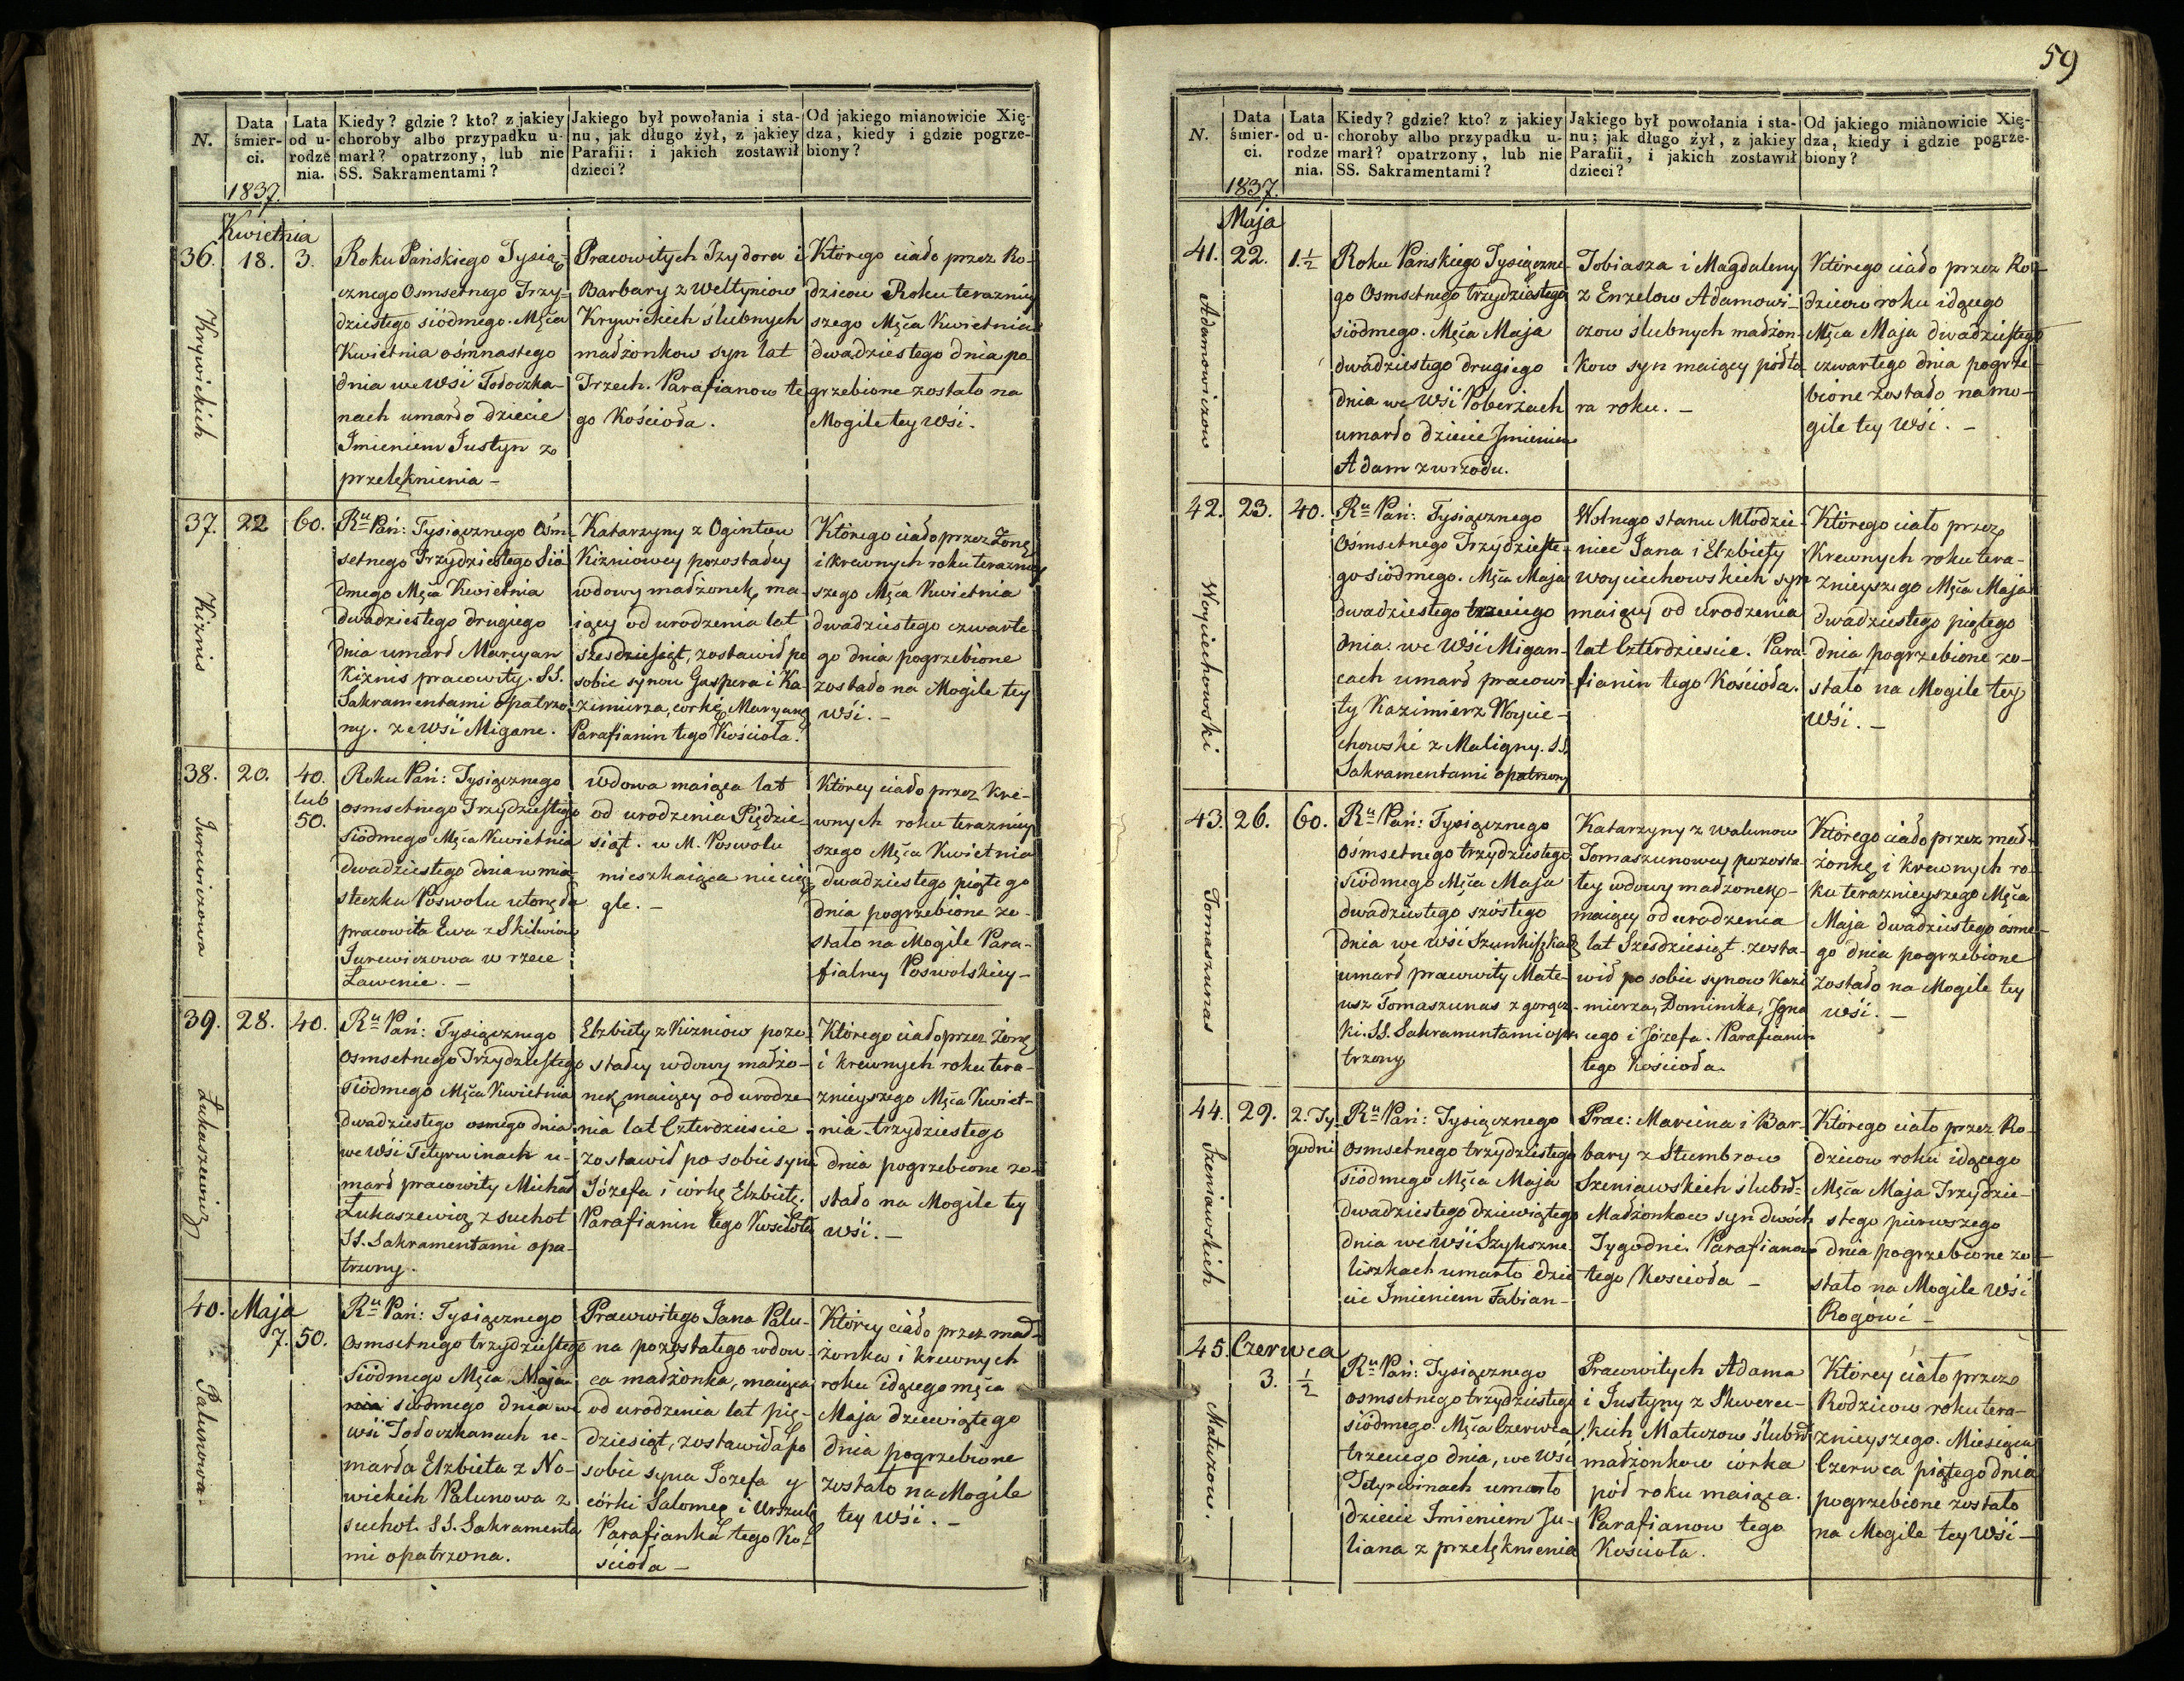 N.
Data śmier- ci.
1837.
Lata od u- rodze nia.
Kiedy? gdzie? kto? z jakiey
choroby albo przypadku u-
marł? opatrzony, lub nie
SS. Sakramentami?
Jakiego był powołania i sta-
nu, jak długo żył, z jakiey
Parafii; i jakich zostawił
dzieci?
Od jakiego mianowicie Xię-
dza, kiedy i gdzie pogrze-
biony?
Kwietnia
36. 18. 3.
Krywickich
Roku Pańskiego Tysią-
cznego Osmsetnego Trzy-
dziestego siódmego. Mşća
Kwietnia ośmnastego
dnia we Wsi Todoczka-
nach umarło dziecie
Imieniem Justyn z
przelęknienia -
Pracowitych Izydora i
Barbary z Weltyniow
Krywickich ślubnych
małżonkow syn lat
Trzech. Parafianow te
go Kościoła.
Którego ciało przez Ro-
dzicow Roku teraźniey
szego Mşća Kwietnia
dwadziestego dnia po
grzebione zostało na
Mogile tey Wśi.
37. 22 60.
Kiżnis
Ru Pań: Tysiącznego Ośm-
setnego Trzydziestego Sió
dmego Mşća Kwietnia
dwadziestego drugiego
dnia umarł Marcyan
Kiżnis pracowity. SS.
Sakramentami opatrzo
ny. ze Wśi Migane.
Katarzyny z Ogintow
Kiżniowey pozostałey
wdowy małżonek, ma-
iący od urodzenia lat
szesdziesiąt, zostawił po
sobie synow Gaspera i Ka
zimierza, corkę Maryannę
Parafianin tego Kościoła.
Którego ciało przez Żonę
i krewnych roku teraźniey
szego Mşća Kwietnia
dwadziestego czwarte
go dnia pogrzebione
zostało na Mogile tey
wśi. -
38. 20. 40. lub 50.
Jurewiczowa
Roku Pań: Tysiącznego
osmsetnego Trzydziestego
siódmego Mşća Kwietnia
dwadziestego dnia w mia
steczku Poswolu utonęła
pracowita Ewa z Skilwiow
Jurewiczowa w rzece
Ławenie. -
wdowa maiąca lat
od urodzenia Pięćdzie-
siąt. w M. Poswolu
mieszkaiąca nie cią
gle. -
Którey ciało przez Kre-
wnych roku teraźniey
szego Mşća Kwietnia
dwadziestego piątego
dnia pogrzebione zo-
stało na Mogile Para-
fialney Poswolskiey -
39. 28. 40.
Łukaszewicz
Ru Pań: Tysiącznego
Osmsetnego Trzydziestego
siódmego Mşća Kwietnia
dwadziestego osmego dnia
we Wśi Tetyrwinach u-
marł pracowity Michał
Łukaszewicz, z suchot
SS. Sakramentami opa-
trzony.
Elżbiety z Kiżniow pozo
stałey wdowy małżo-
nek, maiący od urodze-
nia lat Czterdzieście -
zostawił po sobie syna
Józefa i córkę Elżbietę.
Parafianin tego Kościoła
Którego ciało przez Żonę
i krewnych roku tera-
źnieyszego Mşća Kwiet-
nia trzydziestego
dnia pogrzebione zo-
stało na Mogile tey
wśi. -
40. Maja
7. 50.
Palunowa.
Ru Pań: Tysiącznego
Osmsetnego trzydziestego
siódmego Mşća Maja
siodmego dnia we
wśi Todoczkanach u-
marła Elżbieta z No-
wickich Palunowa z
suchot. SS. Sakramenta
mi opatrzona.
Pracowitego Jana Palu-
na pozostałego wdow-
ca małżonka, maiąca
od urodzenia lat pię-
dziesiąt, zostawiła po
sobie syna Jozefa y
córki Salomeę i Urszulę
Parafianka tego Ko-
ścioła -
Którey ciało przez mał-
żonka i krewnych
roku idącego mşća
Maja dziewiątego
dnia pogrzebione
zostało na Mogile
tey Wśi. -
59
N.
Data śmier- ci.
1837.
Lata od u- rodze nia.
Kiedy? gdzie? kto? z jakiey
choroby albo przypadku u-
marł? opatrzony, lub nie
SS. Sakramentami?
Jakiego był powołania i sta-
nu; jak długo żył, z jakiey
Parafii, i jakich zostawił
dzieci?
Od jakiego mianowicie Xię-
dza, kiedy i gdzie pogrze-
biony?
Maja
41. 22. 1.½
Adamowiczow
Roku Pańskiego Tysiączne-
go Osmsetnego trzydziestego
siódmego. Mşća Maja
dwadziestego drugiego
dnia we Wśi Poberżach
umarło dziecie Imieniem
Adam z wrzodu.
Tobiasza i Magdaleny
z Enzelow Adamowi-
czow ślubnych małżon-
kow syn maiący półto
ra roku. -
Którego ciało przez Ro-
dzicow roku idącego
Mşća Maja dwadziestego
czwartego dnia pogrze-
bione zostało na mo-
gile tey Wśi. -
42. 23. 40.
Woyciechowski
Ru Pań: Tysiącznego
Ośmsetnego Trzydzieste-
go siódmego. Mşća Maja
dwadziestego trzeciego
dnia we Wśi Migan-
cach umarł pracowi-
ty Kazimierz Woycie-
chowski z Maligny. SS.
Sakramentami opatrzony
Wolnego stanu Młodzie-
niec Jana i Elżbiety
Woyciechowskich syn
maiący od urodzenia
lat Czterdzieście. Para-
fianin tego Kościoła.
Którego ciało przez
Krewnych roku tera-
źnieyszego Mşća Maja
Dwadziestego piątego
dnia pogrzebione zo-
stało na Mogile tey
Wśi. -
43. 26. 60.
Tomaszunas
Ru Pań: Tysiącznego
ośmsetnego trzydziestego
siódmego Mşća Maja
dwadziestego szóstego
dnia we wśi
umarł pracowity Mate-
usz Tomaszunas z gorącz-
ki. SS. Sakramentami opa
trzony
Katarzyny z Walunow
Tomaszunowey pozosta-
łey wdowy małżonek -
maiący od urodzenia
lat Szesdziesiąt. zosta-
wił po sobie synow Kazi
mierza, Dominika, Igna
cego i Józefa. Parafianin
tego Kościoła.
Którego ciało przez mał-
żonkę i krewnych ro-
ku teraźnieyszego Mşća
Maja dwadziestego ósme-
go dnia pogrzebione
zostało na Mogile tey
wśi. -
44. 29. 2. Ty- godni
Szeniawskich
Ru Pań: Tysiącznego
osmsetnego trzydziestego
siódmego Mşća Maja
dwadziestego dziewiątego
dnia we Wśi Szykszne-
liszkach umarło dzie
cie Imieniem Fabian -
Prac: Marcina i Bar-
bary z Stumbrow
Szeniawskich ślubn:
Małżonkow syn dwóch
Tygodni. Parafianow
tego Kościoła -
Którego ciało przez Ro-
dzicow roku idącego
Mşća Maja Trzydzie-
stego pierwszego
dnia pogrzebione zo-
stało na Mogile Wśi
Rogowi -
45. Czerwca
3. ½
Matuzow.
Ru Pań: Tysiącznego
osmsetnego trzydziestego
siódmego. Mşća Czerwca
trzeciego dnia, we Wśi
Tetyrwinach umarło
dziecie Imieniem Ju-
liana z przelęknienia
Pracowitych Adama
i Justyny z Skwerec-
kich Matuzow ślubn:
małżonkow córka
pół roku maiąca.
Parafianow tego
Kościoła.
Którey ciało przez
Rodzicow roku tera-
źnieyszego. Miesiąca
Czerwca piątego dnia
pogrzebione zostało
na Mogile tey Wśi -